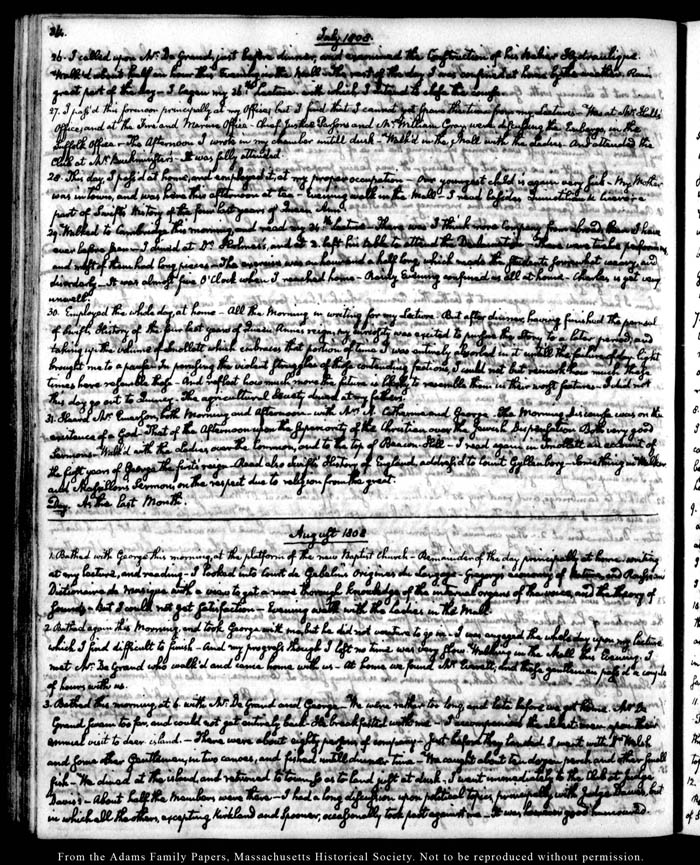 26.
July 1808.
26. I called upon Mr. De Grand, just before dinner, and examined the Construction of his Belier Hydraulique.
Walk'd about half an hour this evening in the Mall. The rest of the day I was confined at home by the weather. Rain
great part of the day. I began my 26th Lecture with which I intend to close the course.
27. I pass'd this forenoon principally at my Office, but I find that I cannot get from the time for my Lectures. Was at Mr. Hall's
Office, and at the Fire and Marine Office. Chief Justice Parsons and Mr. William Gray were discussing the Embargo in the
Suffolk Office. The Afternoon I wrote in my chamber untill dusk. Walk'd in the Mall with the ladies. And attended the
Club at Mr. Buckminster's. It was fully attended.
28. This day I pass'd at home, and employ'd it, at my proper occupation. Our youngest child is again very sick. My Mother
was in town, and was here this afternoon at tea. Evening walk in the Mall. I read besides
part of Swift's History of the four last years of Queen Anne.
29. Walked to Cambridge this morning and read my 24th Lecture. There was I think more company from abroad than I have
ever before seen. I dined at Dr. and at 2 left his table to attend the Declamation. There were twelve performers,
and most of them had long pieces. The exercise was an hour and a half long, which made the students somewhat weary, and
disorderly. It was almost five O'Clock when I reached home. Rainy Evening confined us all at home. Charles is yet very
unwell.
30. Employed the whole day, at home. All the Morning in writing for my Lecture. But after dinner, having finished the perusal
of Swift's History of the four last years of Queen Anne's reign, my curiosity was excited to pursue the story to a later period; and
taking up the volume of Smollett which embraces that portion of time I was entirely absorbed in it untill the failure of day light
brought me to a pause. In perusing the violent struggles of those contending factions, I could not but remark how much these
times have resemble those. And reflect how much more the future is likely to resemble them in their worst features. I did not
this day go out to Quincy. The agricultural Society dined at my father's.
31. Heard Mr. Emerson, both Morning and Afternoon, with Mrs. A. Catherine and George. The Morning discourse was on the
existence of a God. That of the Afternoon upon the superiority of the Christian over the Jewish Dispensation. Both very good
Sermons. Walk'd with the ladies over the Common, and to the top of Beacon Hill. I read again in Smollett an account of
the last years of George the first's reign. Read also Swift's History of England, address'd to Count Gyllenborg. Something in Walker
and Massillon's Sermon, on the respect due to religion from the great.
Day. As the last Month.
August 1808
1. Bathed with George this morning at the platform of the new Baptist Church. Remainder of the day principally at home, writing
at my lecture, and reading. I looked into Court de Gebelin's Origines du Langage, Gregory's economy of Nature, and Rousseau's
Dictionaire de Musique, with a view to get a more thorough knowledge of the internal organs of the voice, and the theory of
sounds. But I could not get satisfaction. Evening walk with the Ladies in the Mall.
2. Bathed again this Morning and took George with me, but he did not venture to go in. I was engaged the whole day upon my lecture
which I find difficult to finish. And my progress though I lost no time was very slow. Walking in the Mall this Evening, I
met Mr. De Grand who walk'd and came home with us. At home we found Mr. Everett, and these gentlemen pass'd a couple
of hours with us.
3. Bathed this morning, at 6 with Mr. De Grand and George. We were rather too long, and late before we got home. Mr. De
Grand swam too far, and could not get entirely back. He breakfasted with me. I accompanied the selectmen upon their
annual visit to deer island. There were about eighty persons, of company. Just before they landed, I went with Dr. Welsh
and some other Gentlemen, in two canoes, and fished untill dinner time. We caught about ten dozen perch and other small
fish. We dined at the island, and returned to town so as to land just at dusk. I went immediately to the Club at Judge
Davis's. About half the Members were there. I had a long discussion upon political topics principally with Judge Davis, but
in which all the others, excepting Kirkland and Spooner, occasionally took part against me. It was however good humoured.
From the Adams Family Papers, Massachusetts Historical Society. Not to be reproduced without permission.